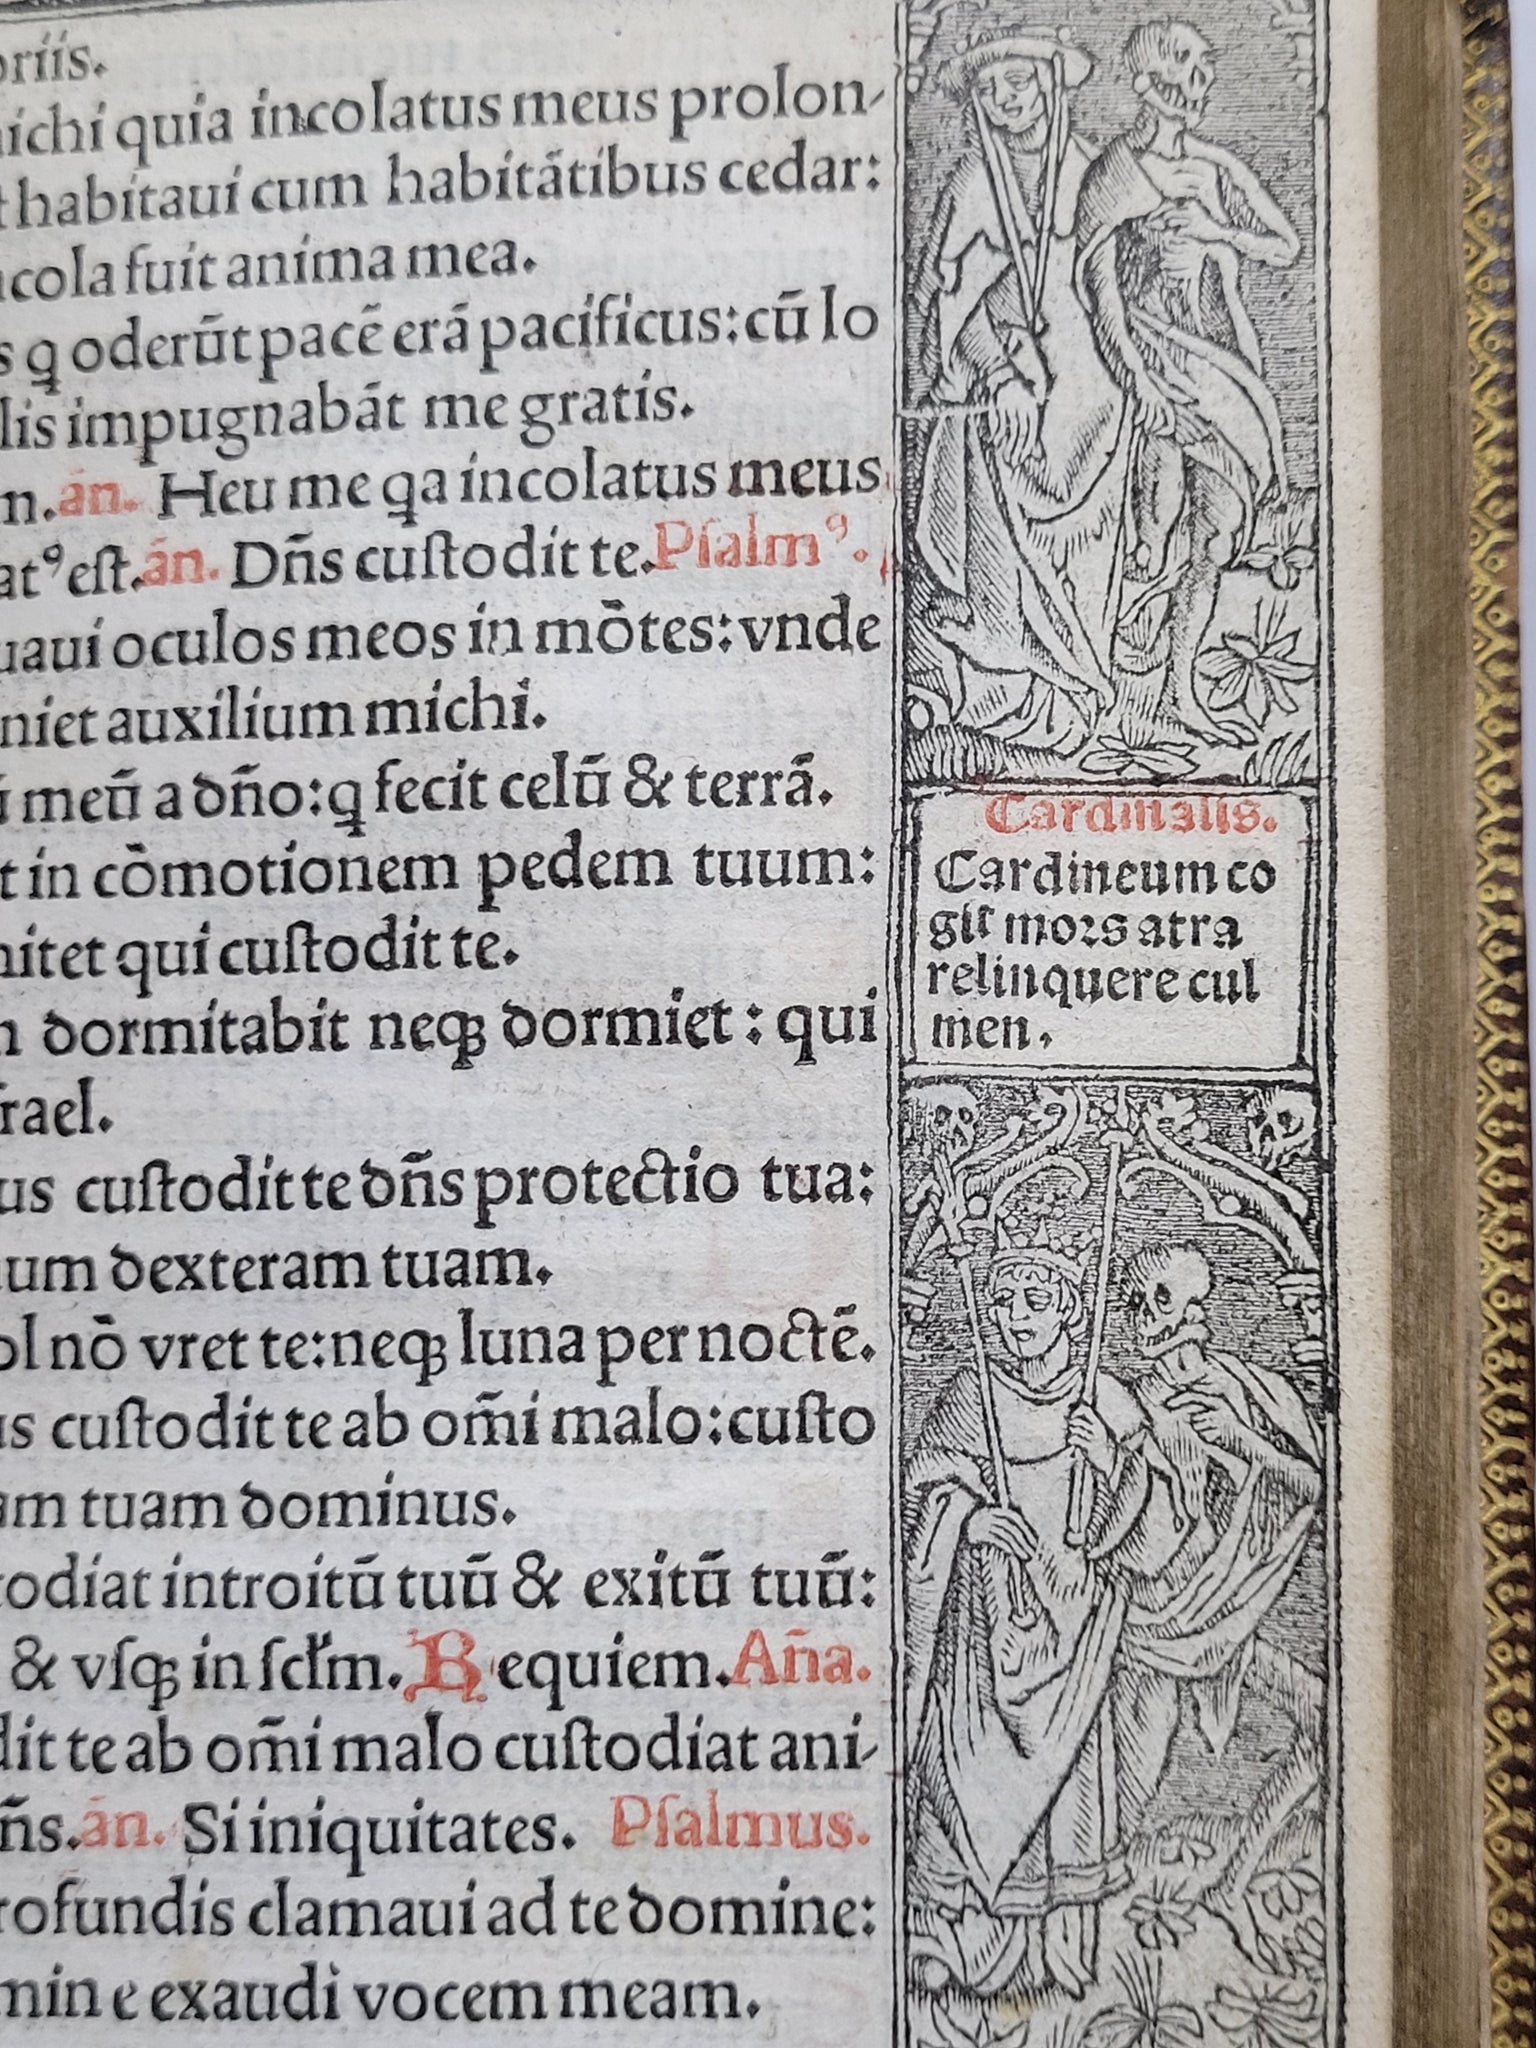 oriis.
michi quia incolatus meus prolon-
t habitaui cum habitātibus cedar:
ncola fuit anima mea.
s q oderūt pacē erā pacificus: cū lo
lis impugnabāt me gratis.
m. an̄. Heu me qa incolatus meus
atꝰ eſt. an̄. Dn̄s cuſtodit te. Pſalmꝰ.
uaui oculos meos in mōtes: vnde
niet auxilium michi.
meū a dn̄o: q fecit celū & terrā.
t in cōmotionem pedem tuum:
mitet qui cuſtodit te.
n dormitabit neqꝫ dormiet: qui
frael.
us cuſtodit te dn̄s protectio tua:
num dexteram tuam.
ol nō vret te: neqꝫ luna per noctē.
us cuſtodit te ab om̄i malo: cuſto
am tuam dominus.
todiat introitū tuū & exitū tuū:
& vſqꝫ in ſcl'm. Requiem. An̄a.
dit te ab om̄i malo cuſtodiat ani-
n̄s. an̄. Si iniquitates. Pſalmus.
rofundis clamaui ad te domine:
min e exaudi vocem meam.
Cardinalis.
Cardineum co
giſ mors atra
relinquere cul
men.